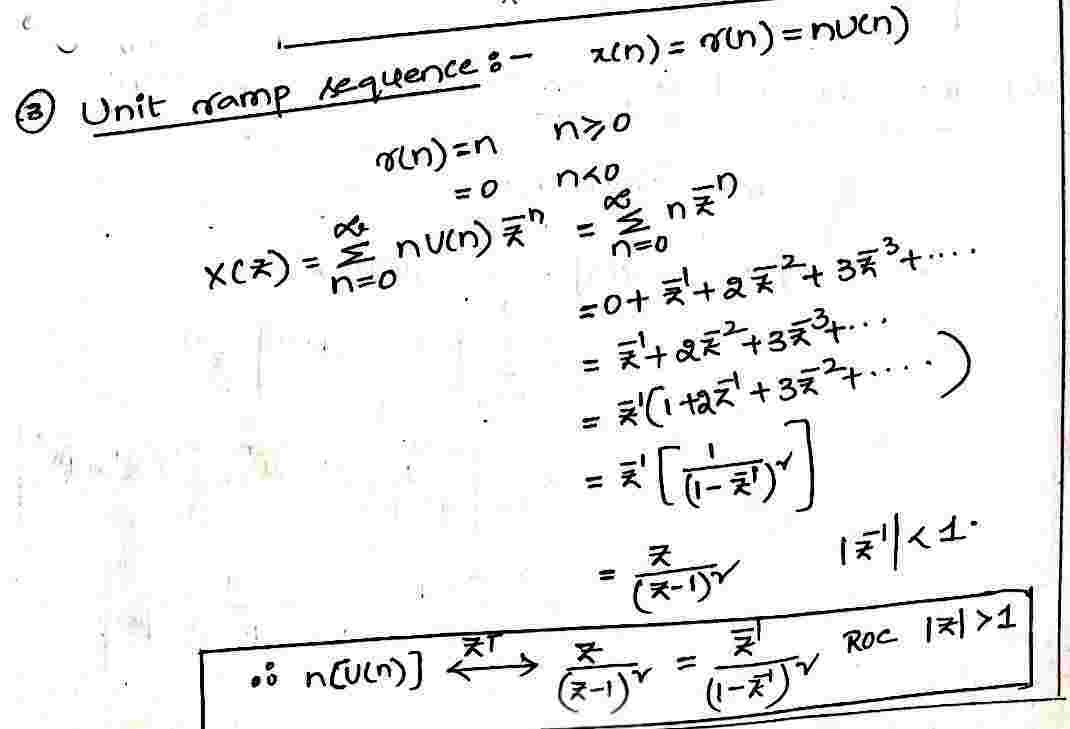 ③ Unit ramp sequence :- x(n) = r(n) = nU(n)
r(n) = n n ≥ 0
= 0 n < 0
X(z) = ∞Σn=0 n U(n) z^-n = ∞Σn=0 n z^-n
= 0 + z^-1 + 2 z^-2 + 3 z^-3 + ....
= z^-1 + 2z^-2 + 3z^-3 + ...
= z^-1 (1 + 2z^-1 + 3z^-2 + ....)
= z^-1 [ 1/(1 - z^-1)^2 ]
= z/(z-1)^2 |z^-1| < 1.
∴ n[U(n)] ⟷ZT z/(z-1)^2 = z^-1/(1-z^-1)^2 ROC |z| > 1